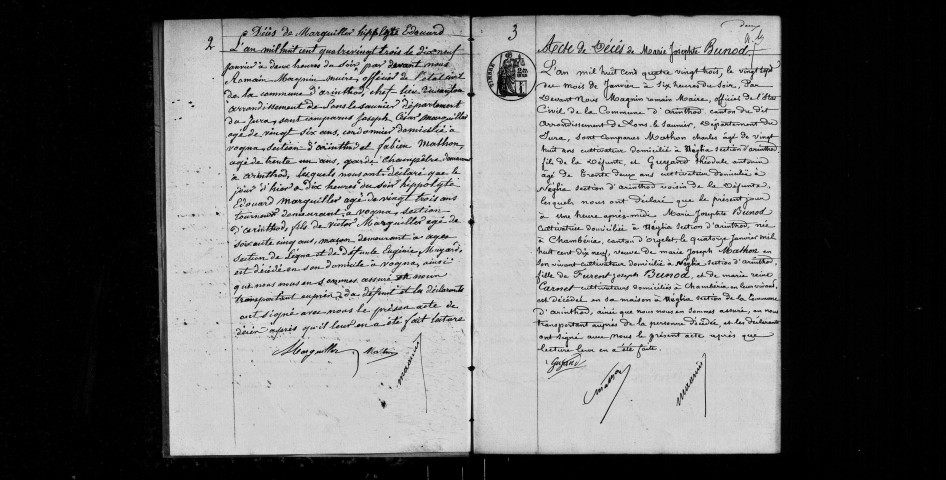 2
Décès de Marguiller hippolyte Edouard
L'an mil huit cent quatre vingt trois le dix neuf
janvier à deux heures du soir par devant nous
Romain Magnin maire, officier de l'état civil
de la commune d'arinthod, chef lieu de canton
arrondissement de Lons le saunier département
du Jura, sont comparus Joseph César marguiller
agé de vingt six ans, cordonnier domicilié à
vogna, section d'arinthod et fabien Mathon,
agé de trente un ans, garde Champêtre demeurant
à arinthod, lesquels nous ont déclaré que le
jour d'hier à dix heures du soir hippolyte
Edouard marguiller agé de vingt trois ans
tourneur demeurant à vogna, section
d'arinthod, fils de victor Marguiller agé de
soixante cinq ans, maçon demeurant à
section de Legna et de défunte Eugénie Muyard,
est décédé en son domicile à vogna, ainsi
que nous nous en sommes assuré en nous
transportant auprès du défunt et les déclarants
ont signé avec nous le présent acte de
décès après qu'il leur en a été fait lecture
Marguiller Mathon magnin
3
deux
TIMBRE
Acte de Décès de Marie Josephte Bunod
L'an mil huit cent quatre vingt trois, le vingt sept
du mois de Janvier à six heures du soir, Par
Devant Nous Magnin romain Maire, officier de l'Etat
Civil de la Commune d'arinthod canton du dit
Arrondissement de Lons le Saunier, Département du
Jura, sont Comparus Mathon charles âgé de vingt
huit ans cultivateur domicilié à Néglia section d'arinthod
fils de la Défunte, et Guyard Théodule antonin
agé de Trente deux ans cultivateur domicilié à
Néglia section d'arinthod voisin de la Défunte,
lesquels nous ont déclaré que le présent jour
à une heure après-midi Marie Josephte Bunod
cultivatrice domiciliée à Néglia section d'arinthod, née
à Chambéria, canton d'orgelet le quatorze Janvier mil
huit cent dix neuf, veuve de marie Joseph Mathon en
son vivant cultivateur domicilié à Néglia section d'arinthod,
fille de Joseph Bunod, et de marie reine
cultivateurs domiciliés à Chambéria en leur vivant,
est décédée en sa maison à Néglia section de la Commune
d'arinthod, ainsi que nous nous en sommes assuré, en nous
transportant auprès de la personne décédée, et les déclarants
ont signé avec nous le présent acte après que
lecture leur en a été faite.
Guyard
Mathon magnin